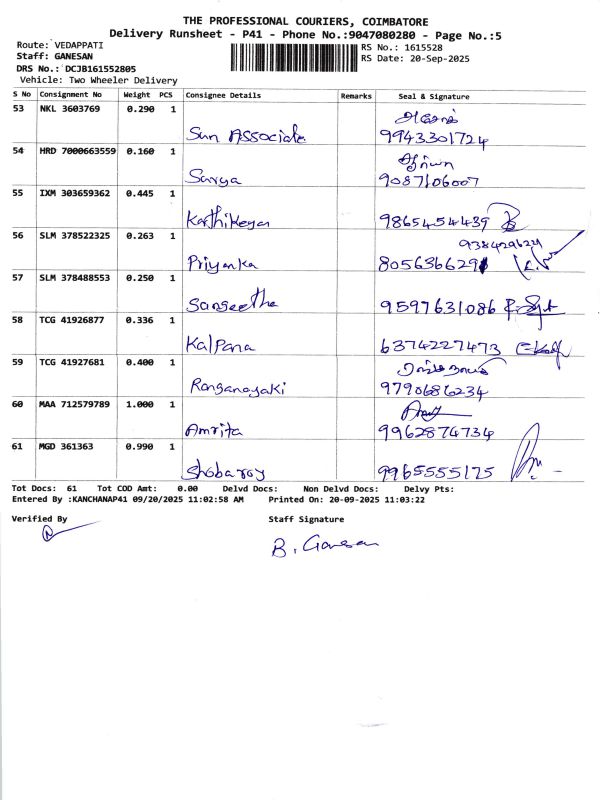 THE PROFESSIONAL COURIERS, COIMBATORE
Delivery Runsheet - P41 - Phone No.:9047080280 - Page No.:5
Route: VEDAPPATI
RS No.: 1615528
Staff: GANESAN
RS Date: 20-Sep-2025
DRS No.: DCJB161552805
Vehicle: Two Wheeler Delivery
S No Consignment No Weight PCS Consignee Details Remarks Seal & Signature
53 NKL 3603769 0.290 1
Sun Associate 9943301724
54 HRD 7000663559 0.160 1
Surya 9087106007
55 IXM 303659362 0.445 1
Karthikeyan 9865454439
56 SLM 378522325 0.263 1
Priyanka 8056366291
57 SLM 378488553 0.250 1
Sangeetha 9597631086
58 TCG 41926877 0.336 1
Kalpana 6374227473
59 TCG 41927681 0.400 1
Ranganayaki 9790686234
60 MAA 712579789 1.000 1
Amrita 9962874734
61 MGD 361363 0.990 1
Shobaroy 9965555175
Tot Docs: 61 Tot COD Amt: 0.00 Delvd Docs: Non Delvd Docs: Delvy Pts:
Entered By :KANCHANAP41 09/20/2025 11:02:58 AM Printed On: 20-09-2025 11:03:22
Verified By Staff Signature
B. Ganesan